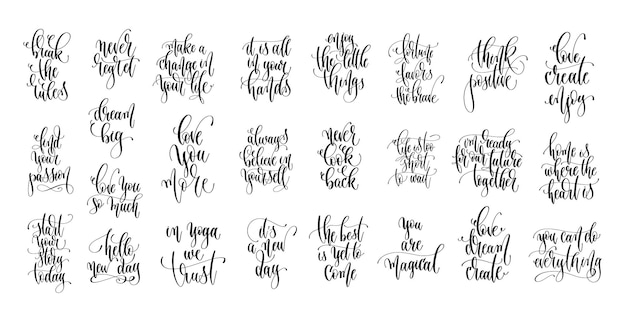 break
the
rules
never
regret
take a
change in
your life
it is all
in your
hands
enjoy
the little
things
fortune
favors
the brave
think
positive
love
create
enjoy
find
your
passion
dream
big
love you
so much
love
you
more
always
believe in
yourself
never
look
back
life is too
short
to wait
i'm ready
for our future
together
home is
where the
heart is
start
your
story
today
hello
new day
in yoga
we
trust
it's
a new
day
the best
is yet to
come
you
are
magical
love
dream
create
you can do
everything